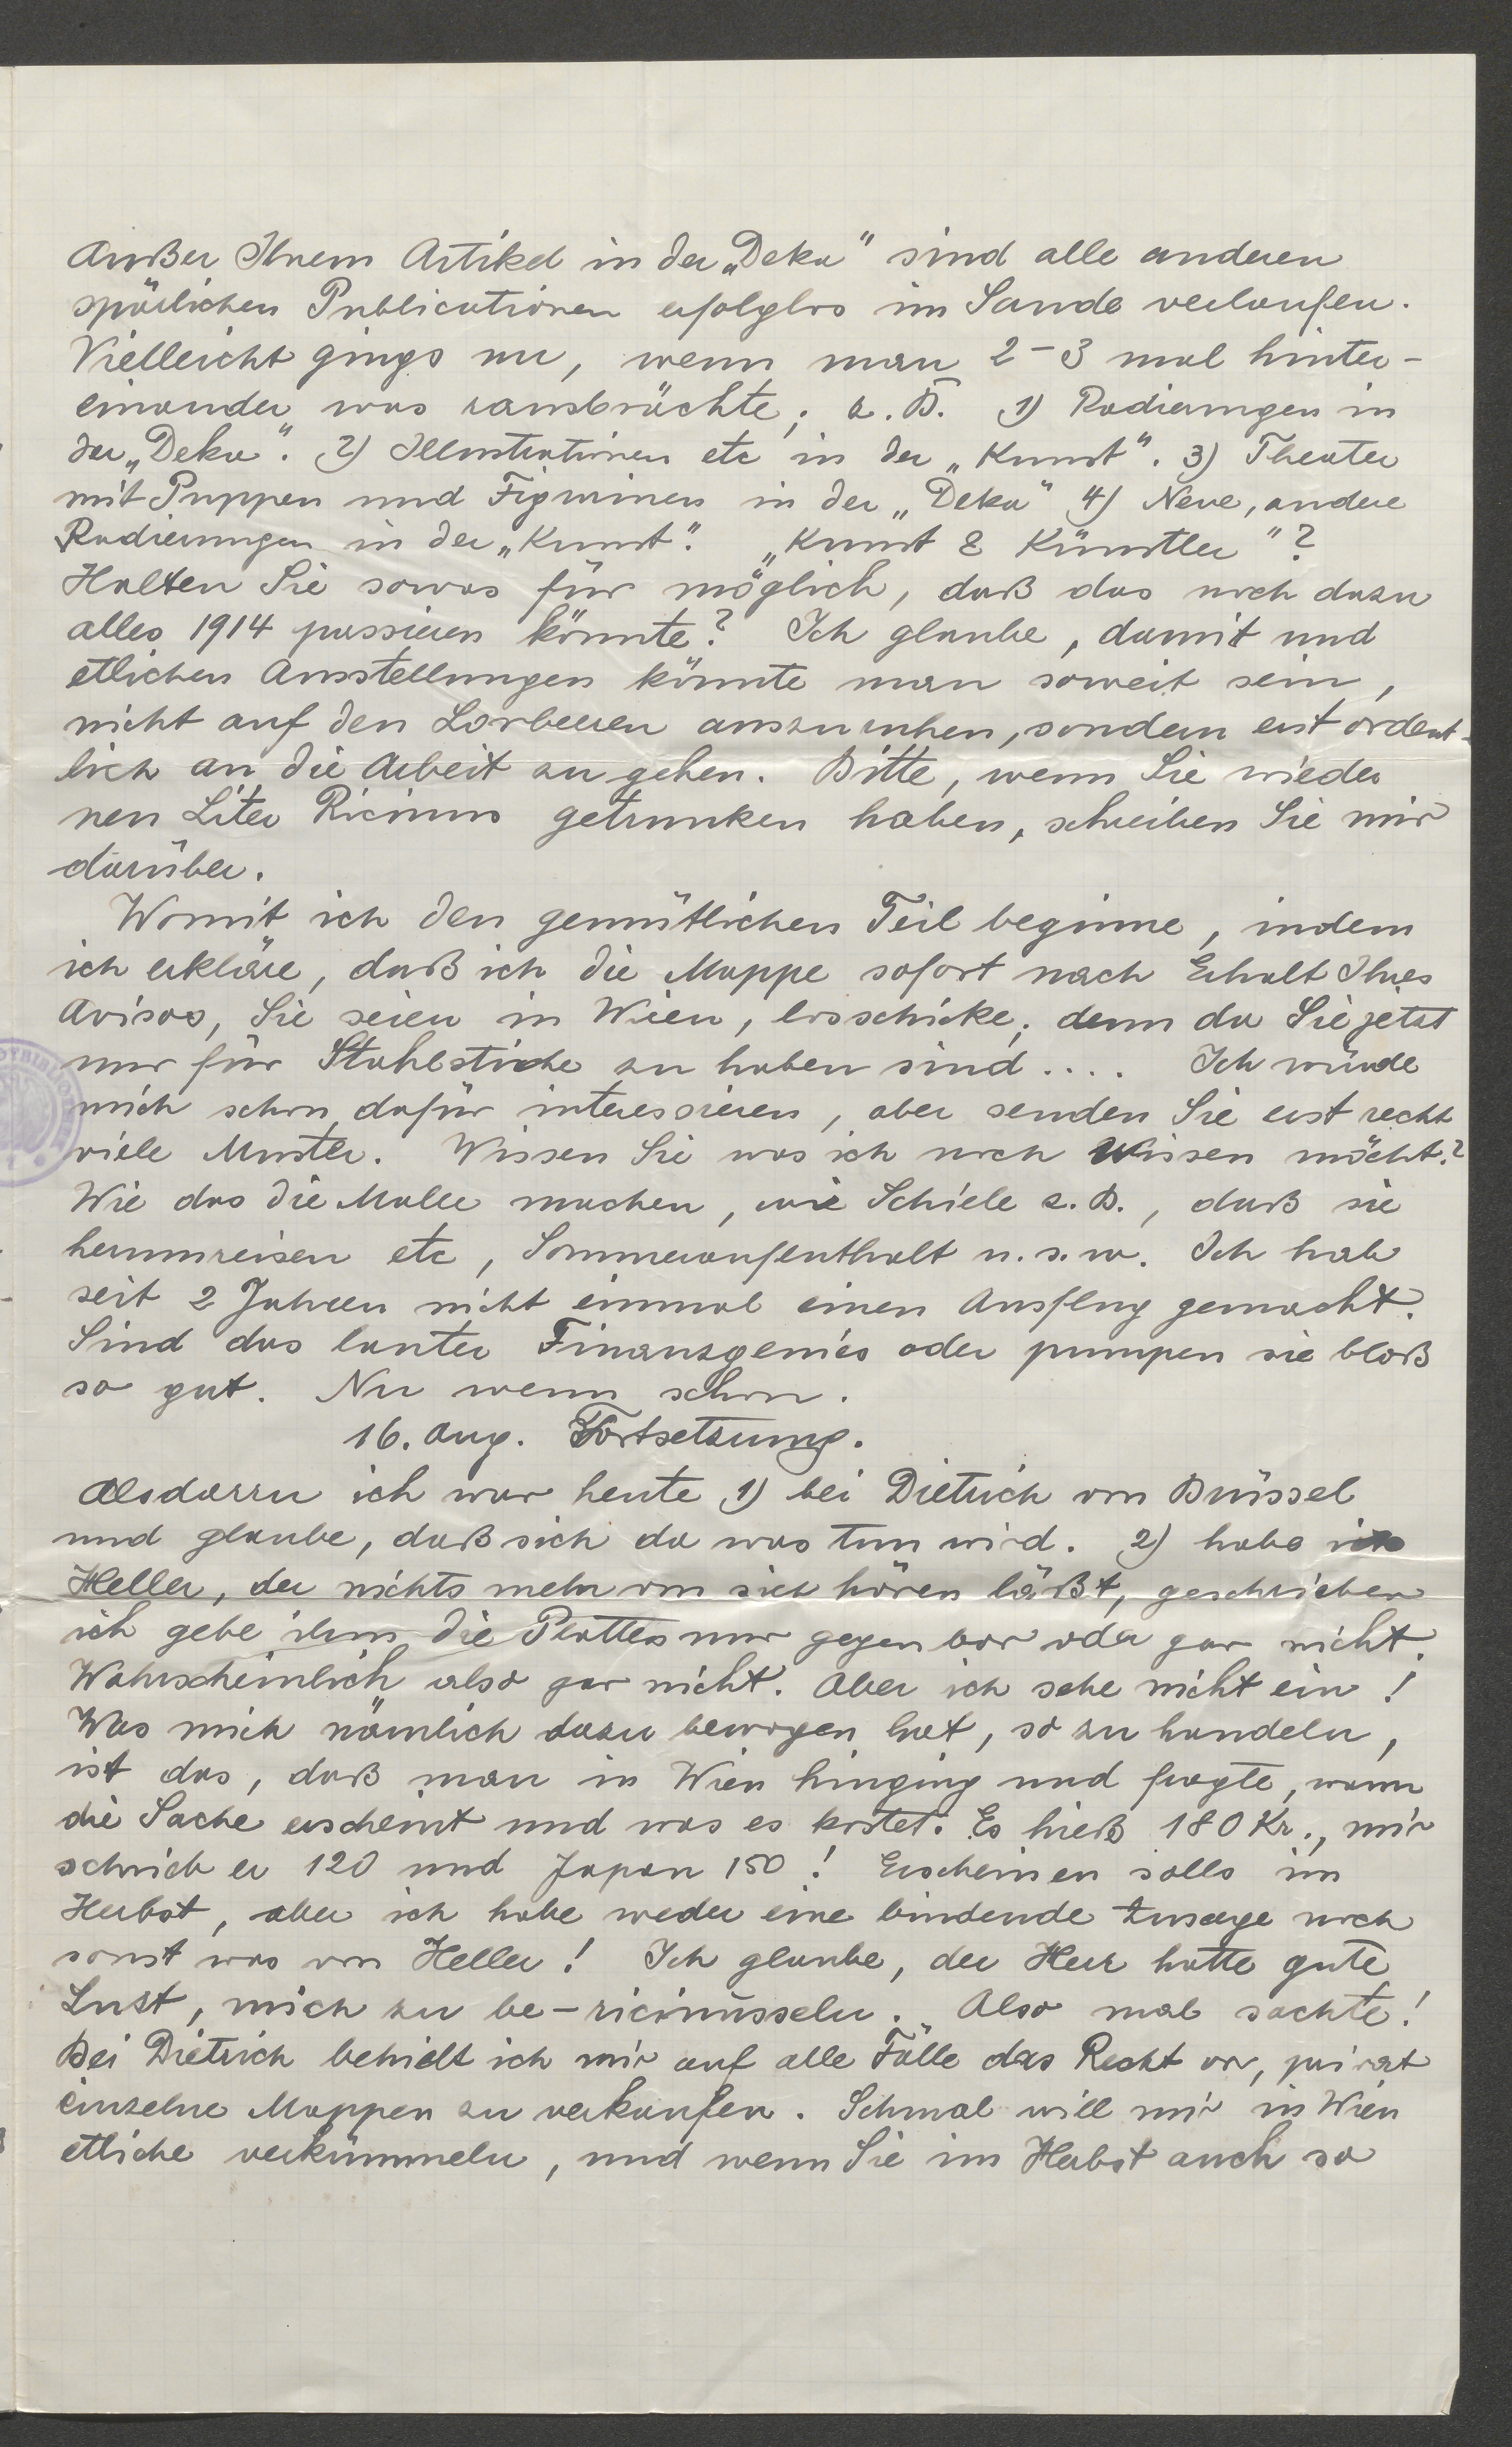 Außer Ihrem Artikel in der „Deku" sind alle anderen
spärlichen Publicationen erfolglos im Sande verlaufen.
Vielleicht gings nur, wenn man 2–3 mal hinter-
einander was rausbrächte; z. B. 1) Radierungen in
der „Deku". 2) Illustrationen etc in der „Kunst". 3) Theater
mit Puppen und Figurinen in der „Deku" 4) Neue, andere
Radierungen in der „Kunst". „Kunst & Künstler"?
Halten Sie sowas für möglich, daß das noch dazu
alles 1914 passieren könnte? Ich glaube, damit und
etlichen Ausstellungen könnte man soweit sein,
nicht auf den Lorbeeren auszuruhen, sondern erst ordent-
lich an die Arbeit zu gehen. Bitte, wenn Sie wieder
nen Liter Ricinus getrunken haben, schreiben Sie mir
darüber.
Womit ich den gemütlichen Teil beginne, indem
ich erkläre, daß ich die Mappe sofort nach Erhalt Ihres
Avisos, Sie seien in Wien, losschicke; denn da Sie jetzt
nur für Stahlstiche zu haben sind .... Ich würde
mich schon dafür interessieren, aber senden Sie erst recht
viele Muster. Wissen Sie was ich noch wissen möcht?
Wie das die Maler machen, wie Schiele z. B., daß sie
herumreisen etc, Sommeraufenthalt u. s. w. Ich hab
seit 2 Jahren nicht einmal einen Ausflug gemacht.
Sind das lauter Finanzgenies oder pumpen sie bloß
so gut. Nu wenn schon.
16. Aug. Fortsetzung.
Alsdarru ich war heute 1) bei Dietrich von Brüssel
und glaube, daß sich da was tun wird. 2) habe ich
Heller, der nichts mehr von sich hören läßt, geschrieben
ich gebe ihm die Platten nur gegen bar oder gar nicht.
Wahrscheinlich also gar nicht. Aber ich sehe nicht ein!
Was mich nämlich dazu bewogen hat, so zu handeln,
ist das, daß man in Wien hinging und fragte, wann
die Sache erscheint und was es kostet. Es hieß 180 Kr., mir
schrieb er 120 und Japan 150! Erscheinen solls im
Herbst, aber ich habe weder eine bindende Zusage noch
sonst was von Heller! Ich glaube, der Herr hatte gute
Lust, mich zu be-ricinusseln. Also mal sachte!
Bei Dietrich behielt ich mir auf alle Fälle das Recht vor, privat
einzelne Mappen zu verkaufen. Schmal will mir in Wien
etliche verkümmeln, und wenn Sie im Herbst auch so